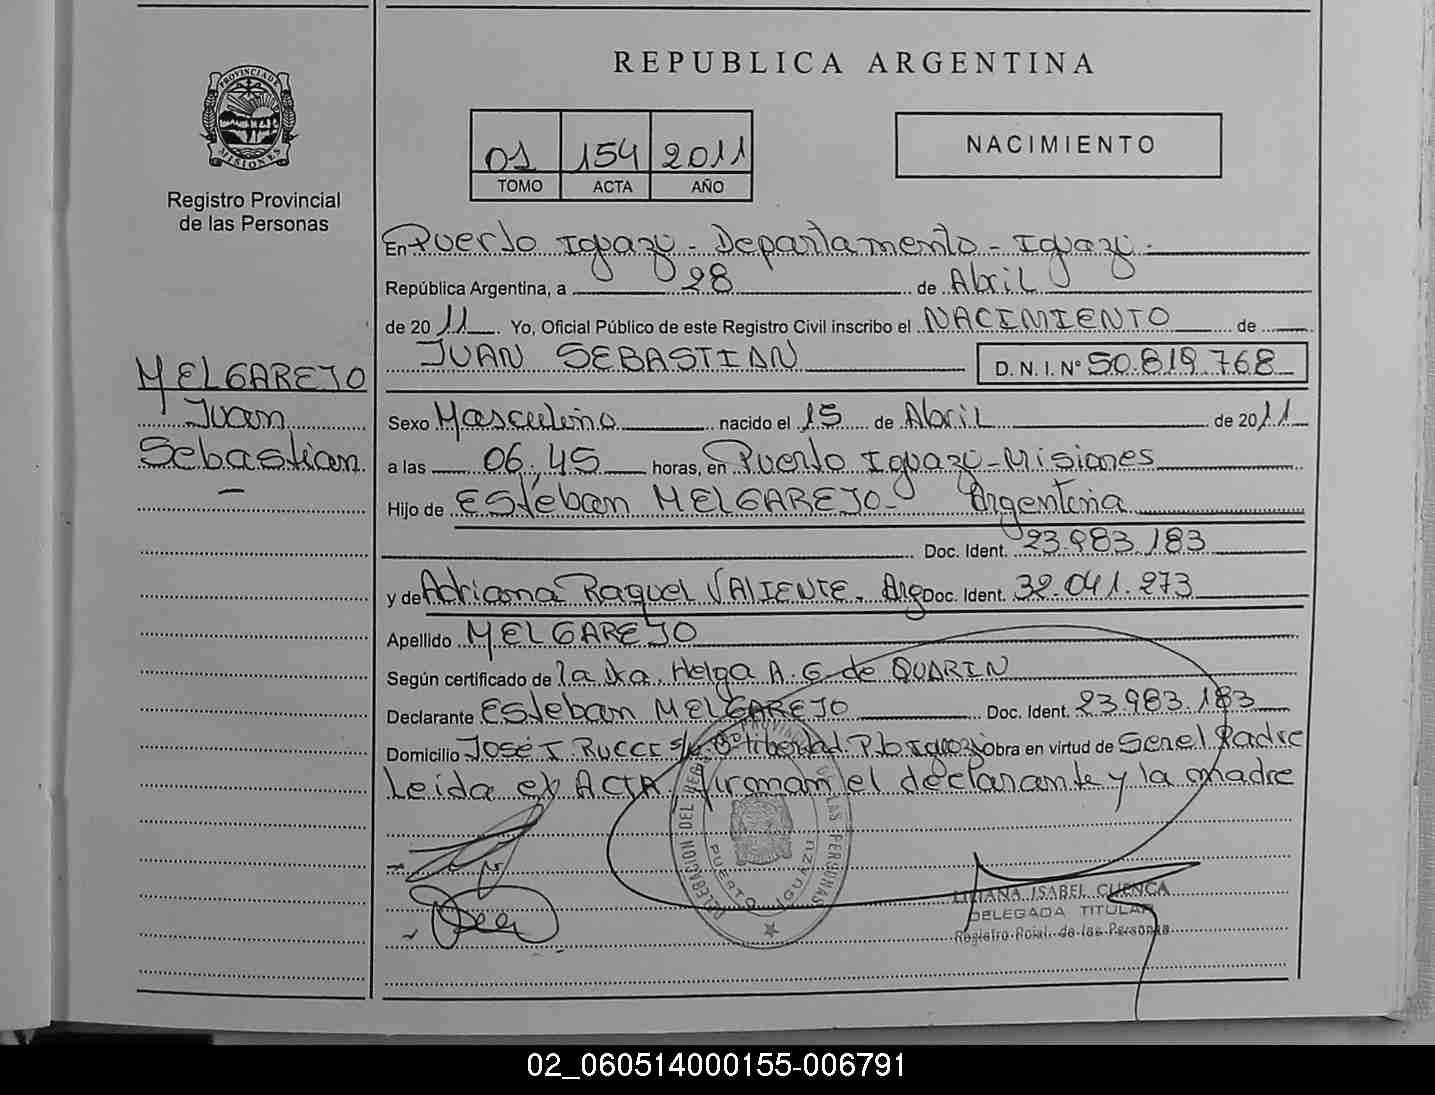 PROVINCIA DE
MISIONES
Registro Provincial
de las Personas
MELGAREJO
Juan
Sebastian
REPUBLICA ARGENTINA
01 154 2011
TOMO ACTA AÑO
NACIMIENTO
En Puerto Iguazú - Departamento - Iguazú -
República Argentina, a 28 de Abril
de 2011. Yo, Oficial Público de este Registro Civil inscribo el NACIMIENTO de
JUAN SEBASTIAN D. N. I. N° 50.819.768
Sexo Masculino nacido el 15 de Abril de 2011
a las 06:45 horas, en Puerto Iguazú - Misiones
Hijo de Esteban MELGAREJO - Argentina
Doc. Ident. 23.983.183
y de Adriana Raquel VALIENTE. Arg Doc. Ident. 32.041.273
Apellido MELGAREJO
Según certificado de la Dra. Helga A. G. de QUARIN
Declarante Esteban MELGAREJO Doc. Ident. 23.983.183
Domicilio José I. RUCCI s/n B° libertad. Pto Iguazú Obra en virtud de Ser el Padre
Leida el ACTA firman el declarante y la madre
DELEGACION DEL REG. PROVINCIAL DE LAS PERSONAS
PUERTO IGUAZU
LILIANA ISABEL CUENCA
DELEGADA TITULAR
Registro Pcial. de las Personas
02_060514000155-006791